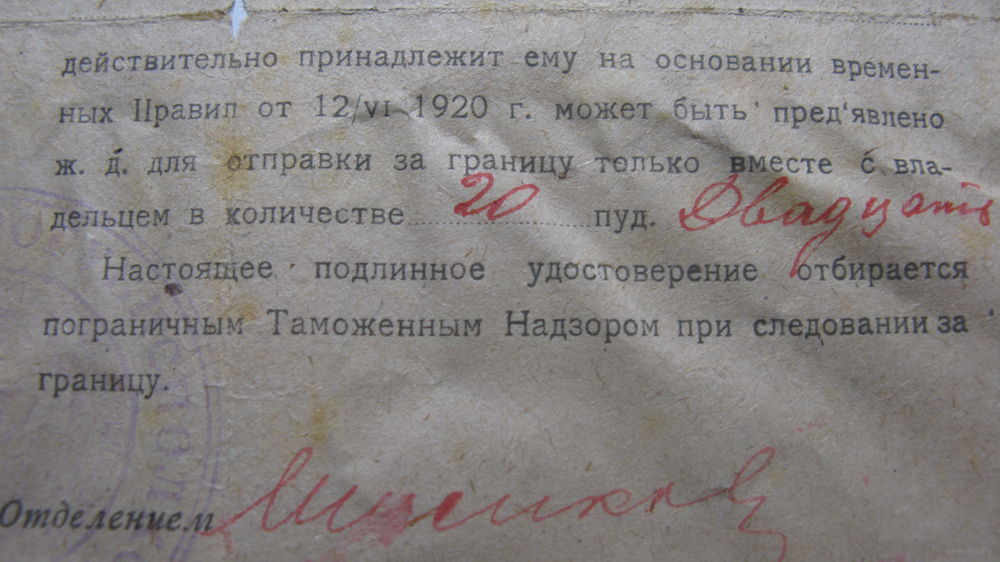 действительно принадлежит ему на основании времен-
ных Правил от 12/VI 1920 г. может быть пред'явлено
ж. д. для отправки за границу только вместе с вла-
дельцем в количестве 20 пуд. Двадцать
Настоящее подлинное удостоверение отбирается
пограничным Таможенным Надзором при следовании за
границу.
Отделением